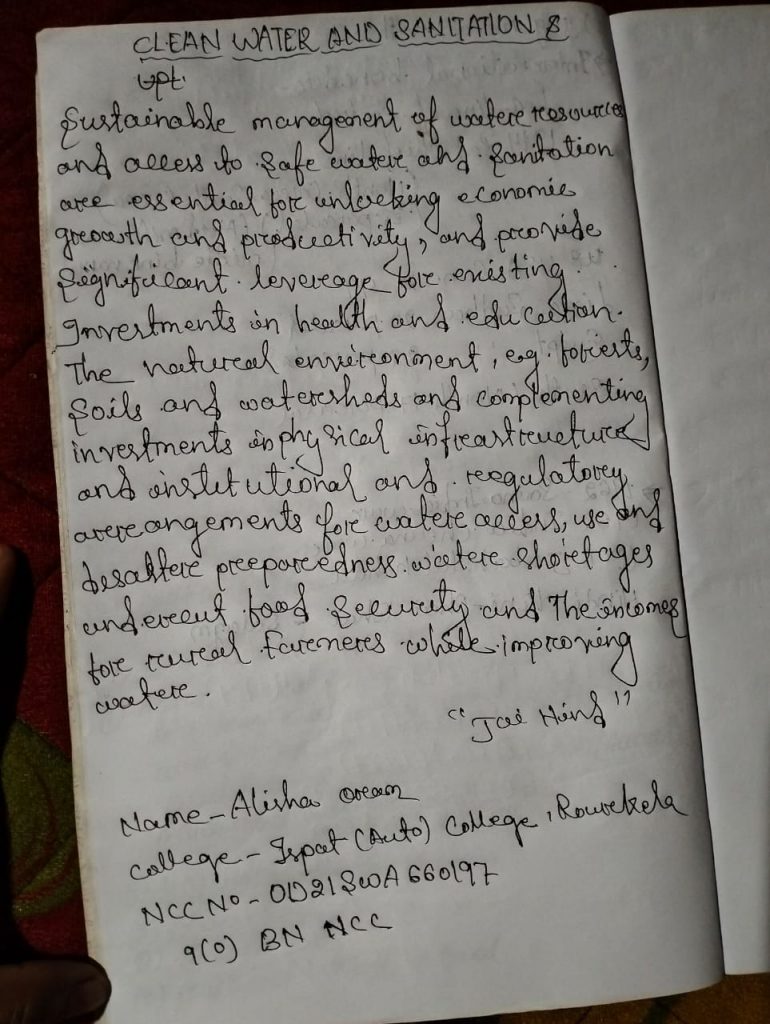 CLEAN WATER AND SANITATION 8
upt.
Sustainable management of watere resources
and access to safe watere and sanitation
are essential for unlocking economic
growth and productivity, and provide
significant leverage for existing
Investments in health and education.
The natural environment, eg. forests,
soils and watersheds and complementing
investments in physical infrastructure
and institutional and regulatory
arrangements fore watere access, use and
desastere preparedness. watere shortages
undercut food security and The incomes
fore rural farmers while improving
watere.
"Jai Hind"
Name - Alisha oram
College - Ispat (Auto) College, Rourkela
NCC No - OD21SWA660197
9(0) BN NCC